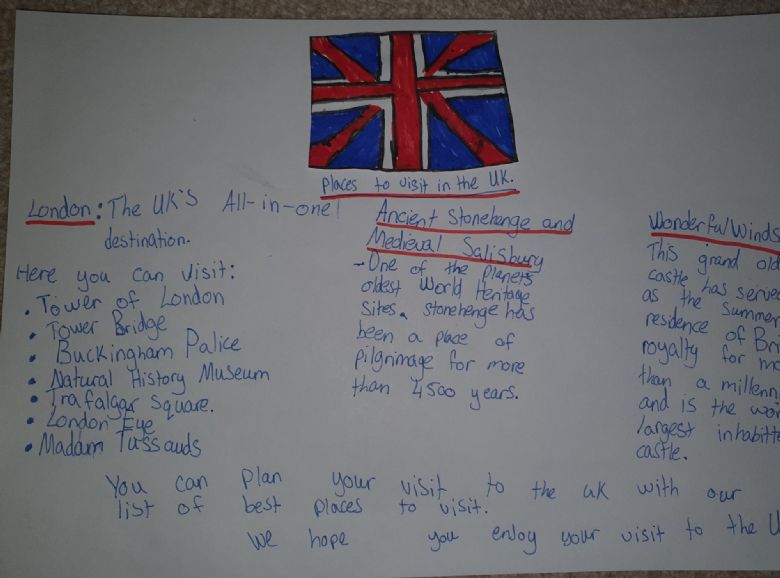 Places to visit in the UK.
London: The UK'S All-in-one!
destination.
Here you can visit:
• Tower of London
• Tower Bridge
• Buckingham Palice
• Natural History Museum
• Trafalgar Square.
• London Eye
• Madam Tussauds
Ancient Stonehenge and
Medieval Salisbury
- One of the planets
oldest World Heritage
Sites. Stonehenge has
been a place of
pilgrimage for more
than 4500 years.
Wonderful Winds
This grand old
castle has serve
as the Summer
residence of Bri
royalty for mo
than a millenn
and is the wor
largest inhabitt
castle.
You can plan your visit to the uk with our
list of best places to visit.
We hope you enjoy your visit to the U